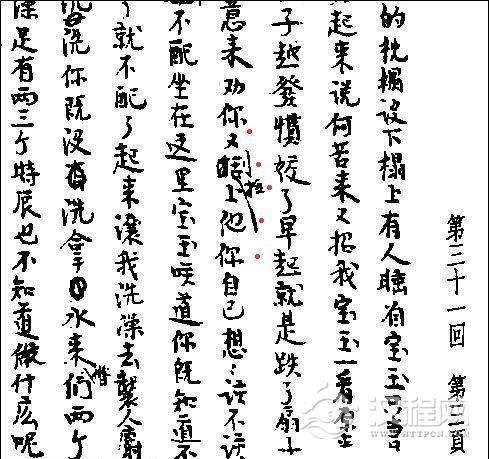 第三十一回 第二頁
的枕榻设下榻上有人睡着宝玉只当
起来说何苦来又招我宝玉一看原来
子越發慣姣了早起就是跌了扇子
意来劝你又刮拉上他你自己想:话不该
不配坐在这里宝玉唉道你既知道不
了就不配了起来讓我洗澡去襲人麝
洗你既没有洗拿了水来偺们两个
澡足有两三个時辰也不知道做什広呢
汉程网
HTTPCN.COM